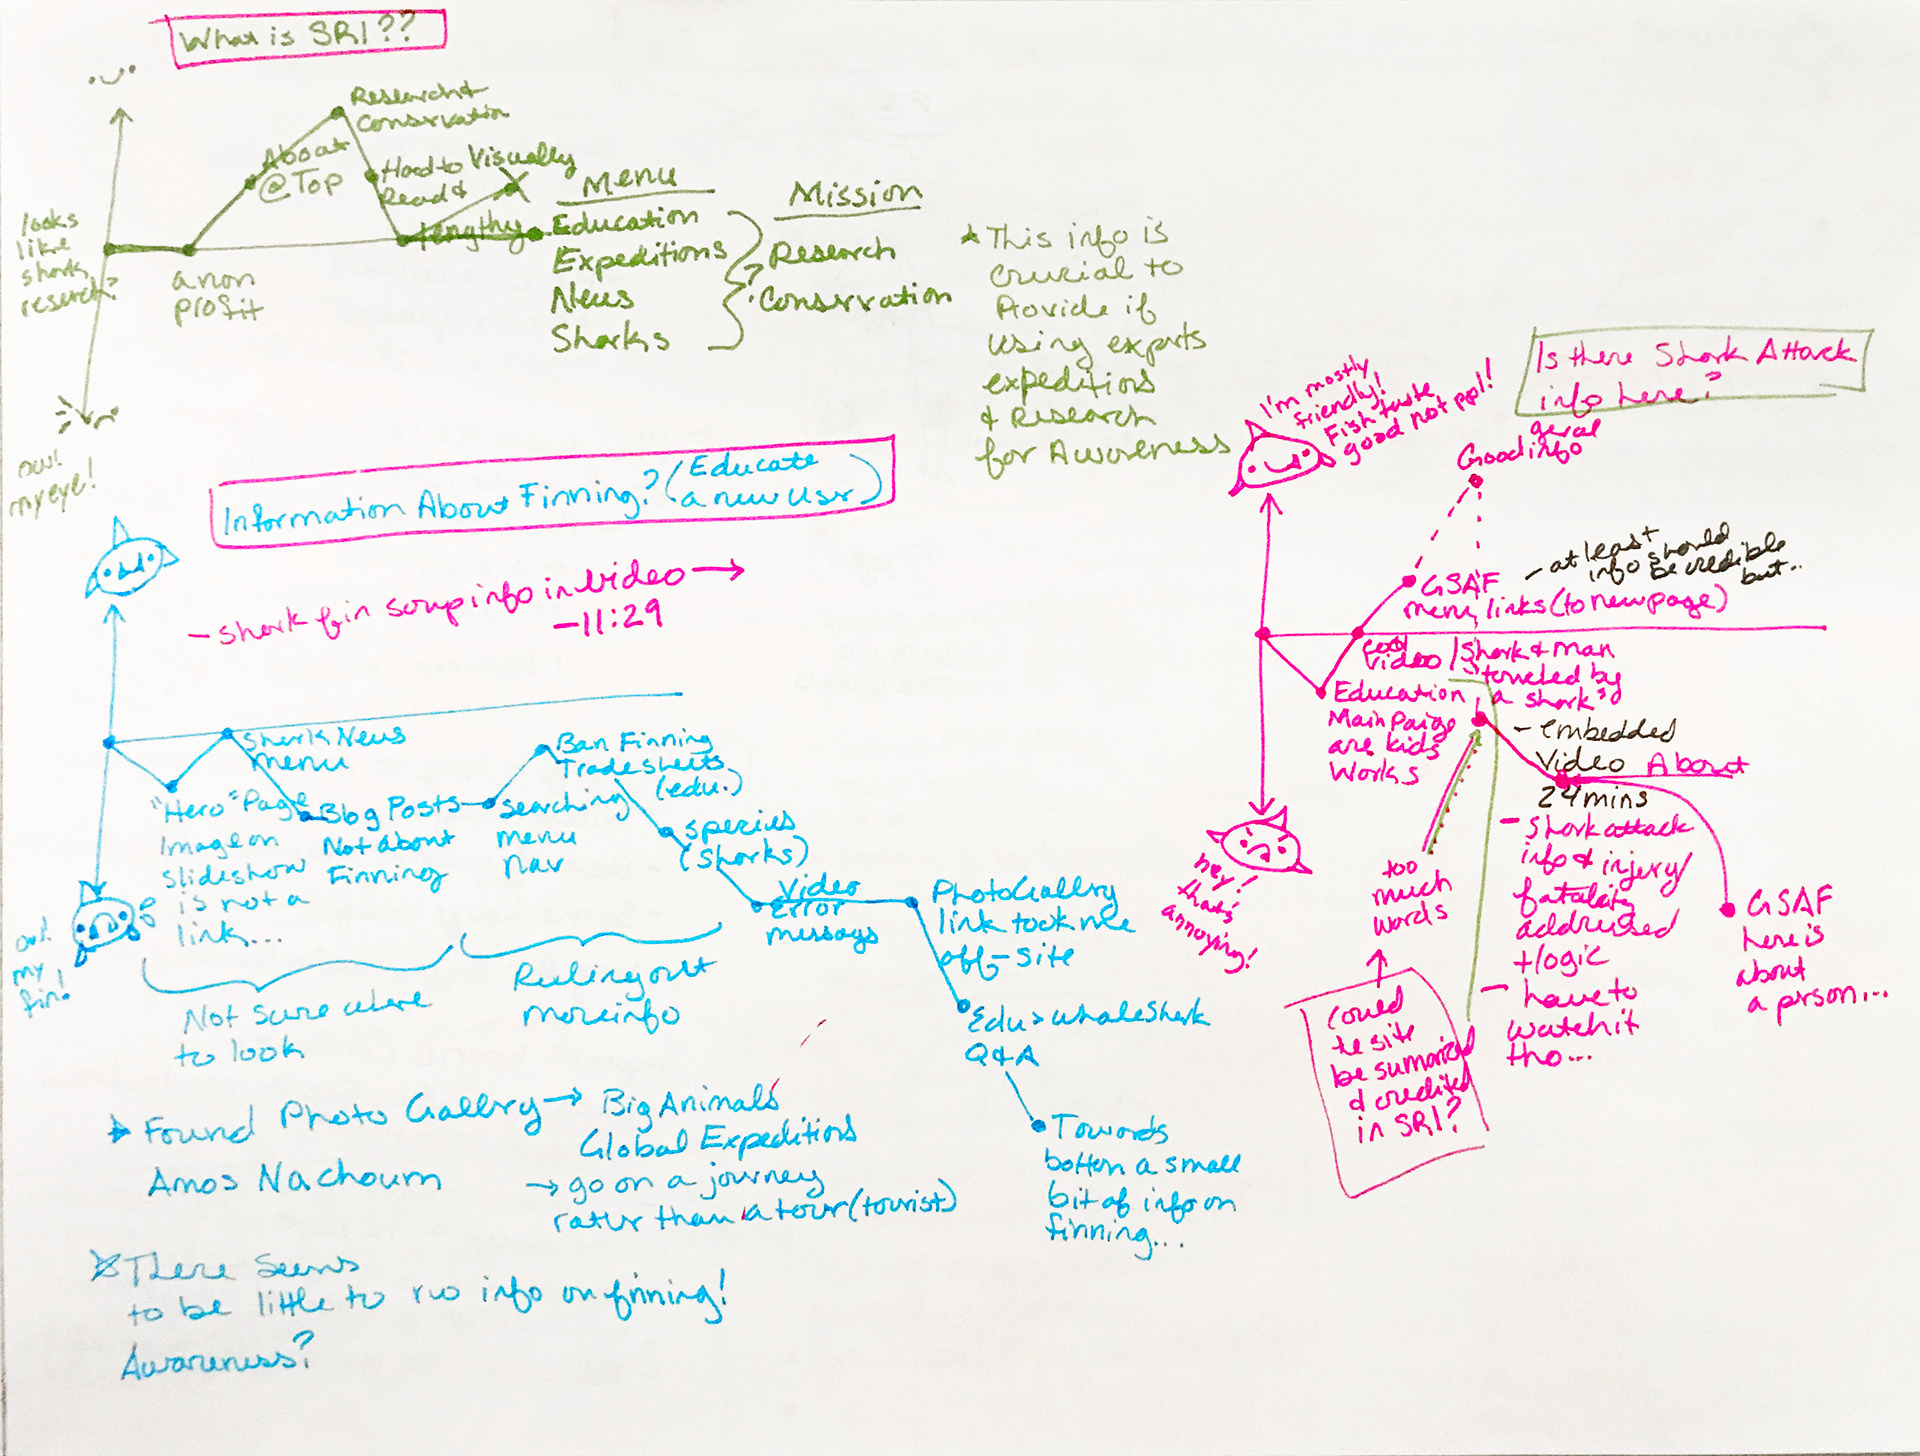 What is SRI??
Research &
Conservation
About
@Top
Hard to Visually
Read &
lengthy
looks
like
shark
reserch?
a non
profit
Menu
Education
Expeditions
News
Sharks
?
Mission
Research
Conservation
This info is
crucial to
Provide if
using experts
expeditions
& Research
for Awareness
ow!
my eye!
Information About Finning? (Educate
a new user)
- shark fin soup info in video →
- 11:29
Shark News
menu
"Hero" Page
Image on
slideshow
is not a
link...
Blog Posts
Not about
Finning
searching
menu
nav
Ban Finning
Trade sheets
(edu.)
species
(sharks)
Video
Error
messages
Photo Gallery
link took me
off-site
Edu > whale shark
Q & A
Towards
bottom a small
bit of info on
finning...
ow!
my
fin!
Not sure where
to look
Ruling out
more info
Found Photo Gallery → Big Animals
Global Expeditions
Amos Nachoum
→ go on a journey
rather than a tour (tourist)
There seems
to be little to no info on finning!
Awareness?
Is there Shark Attack
info here?
I'm mostly
friendly!
Fish taste
good not ppl!
Good info
- at least
info should
be credible
but..
GSAF
menu links (to new page)
cool
video
Shark & man
a shark"
Education
Main Paige
are kids
Works
- embedded
Video
24 mins
About
- shark attack
info & injury/
fatality
addressed
+ logic
- have to
watch it
tho...
GSAF
here is
about
a person...
too
much
words
could
the site
be sumarized
& credited
in SRI?
hey!
thats
annoying!